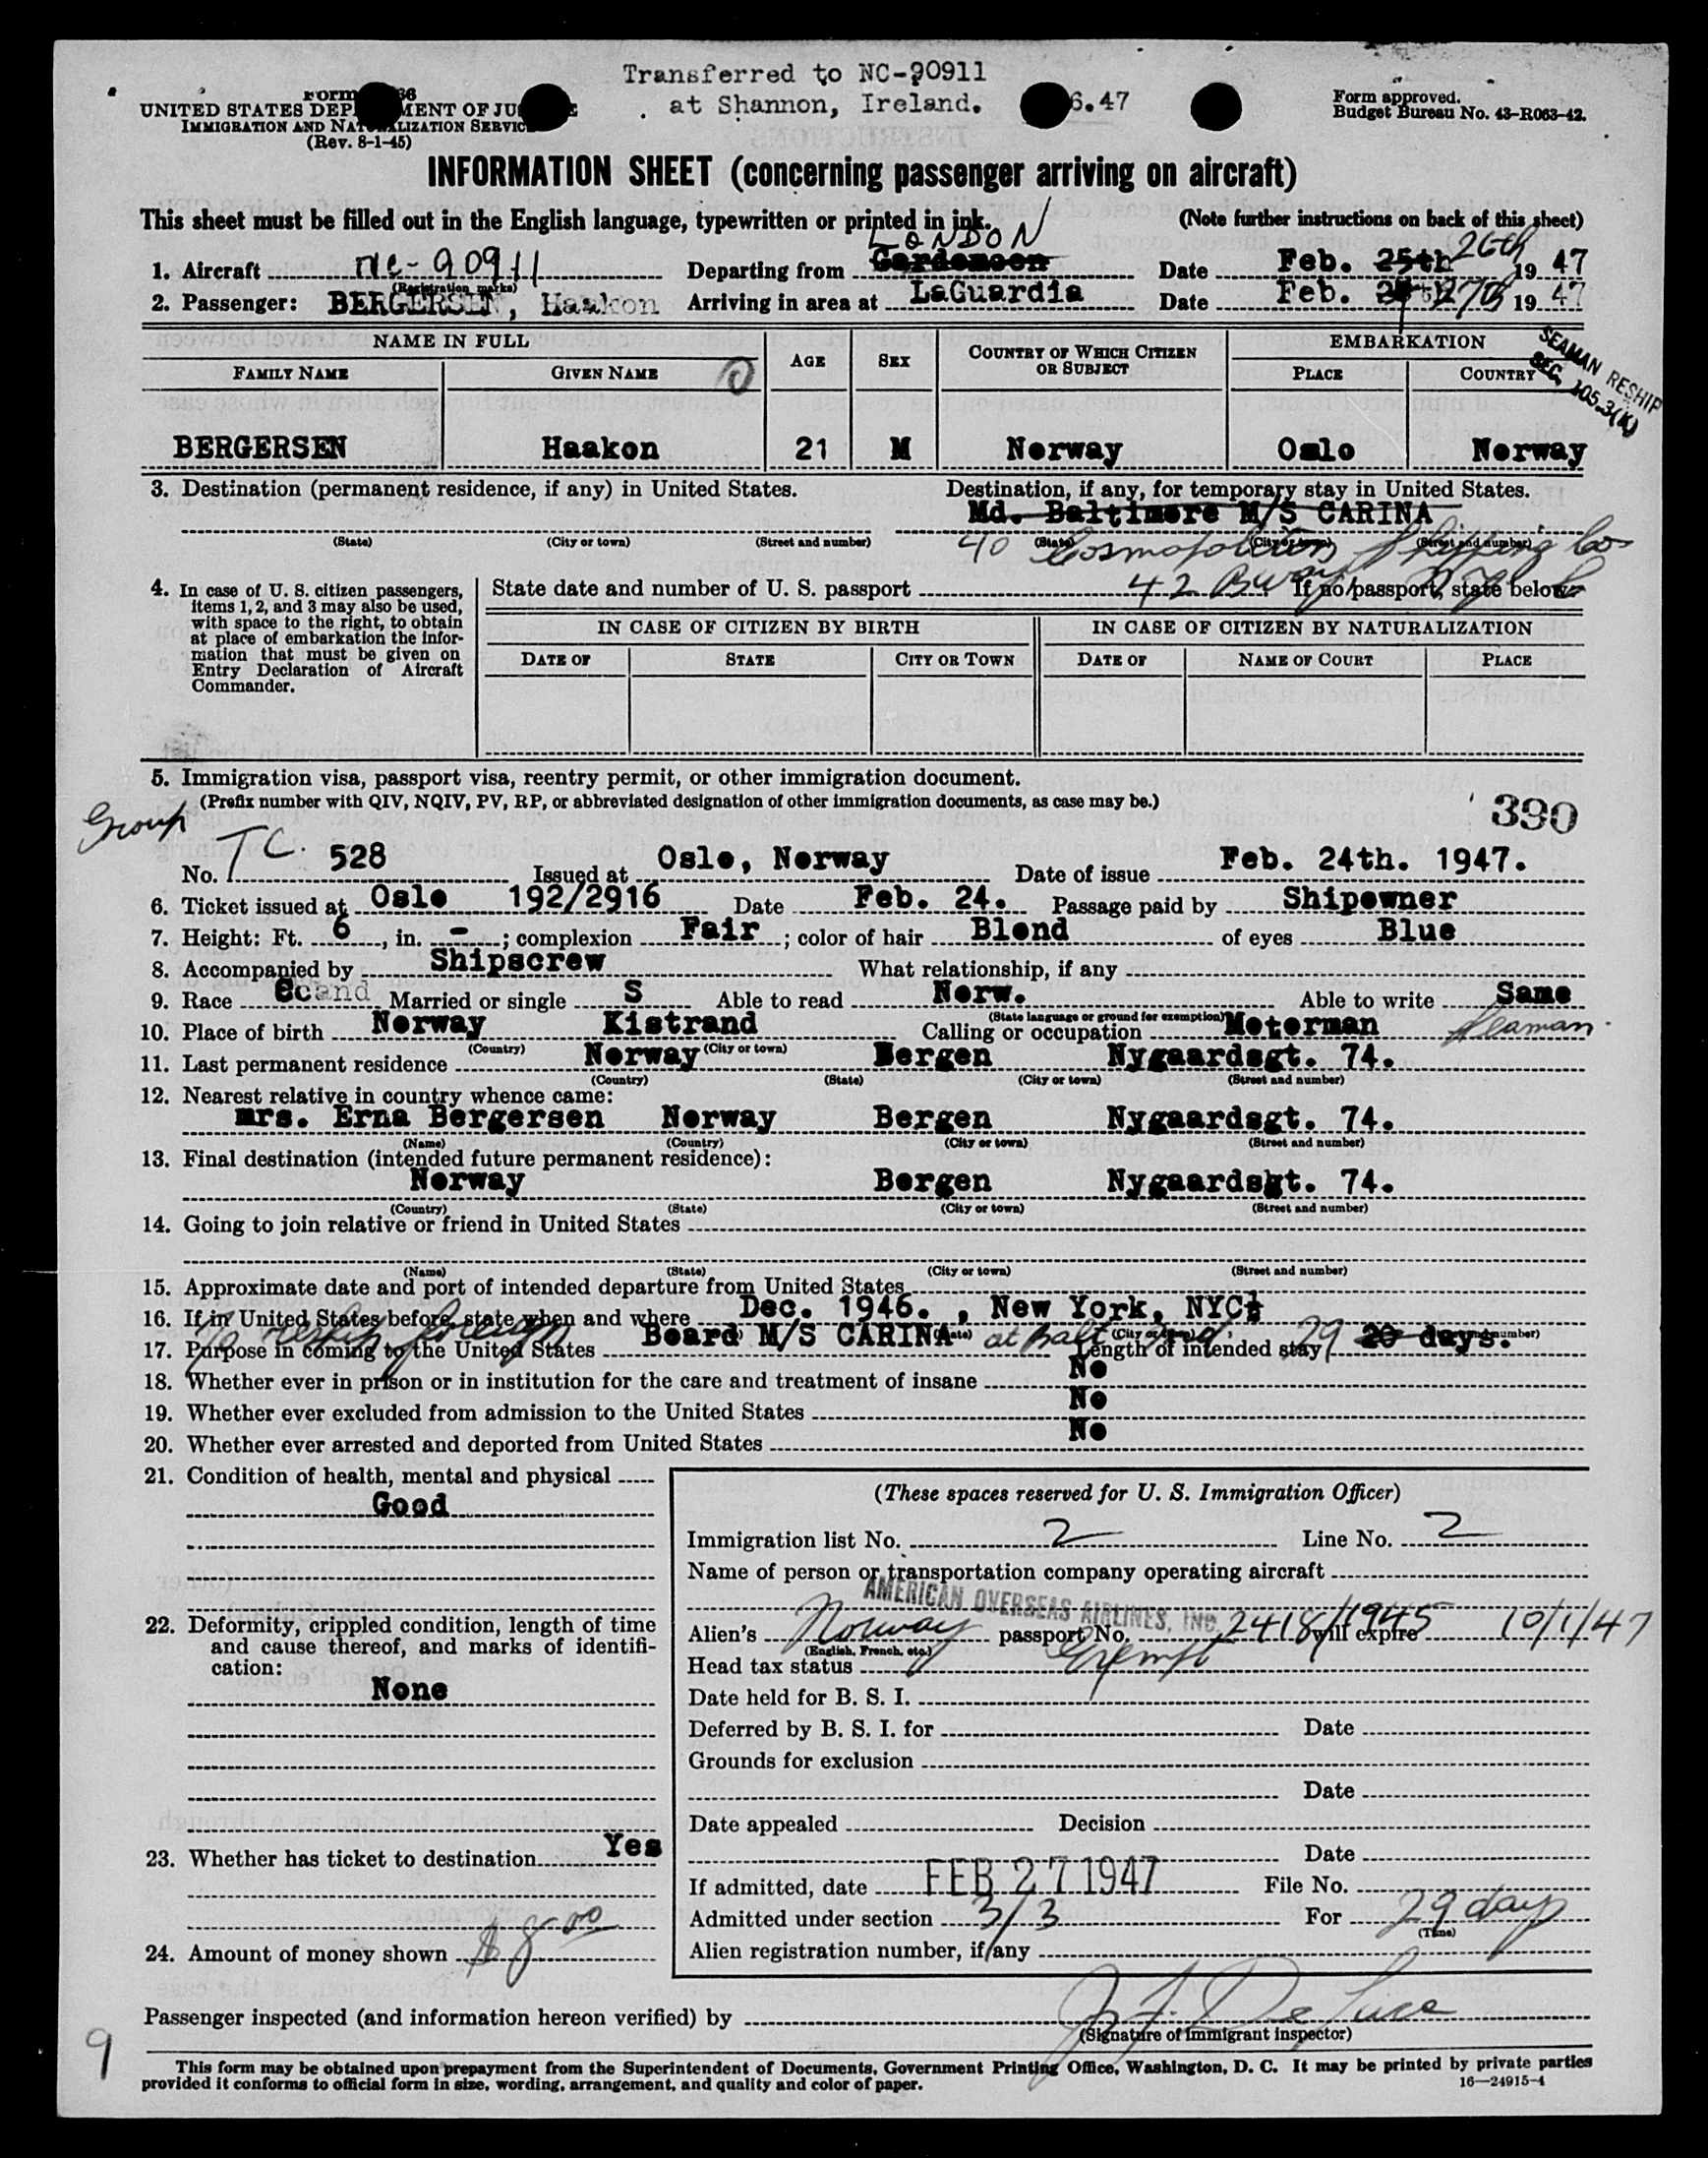 Transferred to NC-90911
at Shannon, Ireland. 6.47
Form 66
UNITED STATES DEP MENT OF JU E
IMMIGRATION AND NAT LIZATION SERVIC
(Rev. 8-1-45)
Form approved.
Budget Bureau No. 43-R063-42.
INFORMATION SHEET (concerning passenger arriving on aircraft)
This sheet must be filled out in the English language, typewritten or printed in ink. (Note further instructions on back of this sheet)
LONDON 26th
1. Aircraft NC-90911 Departing from Date Feb. 25th 19 47
(Registration marks)
2. Passenger: BERGERSEN, Haakon Arriving in area at LaGuardia Date Feb. 27th 19 47
NAME IN FULL AGE SEX COUNTRY OF WHICH CITIZEN OR SUBJECT EMBARKATION
FAMILY NAME GIVEN NAME PLACE COUNTRY
SEAMAN RESHIP
SEC. 105.3(K)
BERGERSEN Haakon 21 M Norway Oslo Norway
3. Destination (permanent residence, if any) in United States. Destination, if any, for temporary stay in United States.
Md. Baltimore M/S CARINA
(State) (City or town) (Street and number) (State) (City or town) (Street and number)
Cosmopolitan Shipping Co
42 Bway
4. In case of U. S. citizen passengers, items 1, 2, and 3 may also be used, with space to the right, to obtain at place of embarkation the information that must be given on Entry Declaration of Aircraft Commander.
State date and number of U. S. passport If no passport, state below:
IN CASE OF CITIZEN BY BIRTH IN CASE OF CITIZEN BY NATURALIZATION
DATE OF STATE CITY OR TOWN DATE OF NAME OF COURT PLACE
5. Immigration visa, passport visa, reentry permit, or other immigration document.
(Prefix number with QIV, NQIV, PV, RP, or abbreviated designation of other immigration documents, as case may be.)
390
Group
No. T.C. 528 Issued at Oslo, Norway Date of issue Feb. 24th. 1947.
6. Ticket issued at Oslo 192/2916 Date Feb. 24. Passage paid by Shipowner
7. Height: Ft. 6, in. -; complexion Fair; color of hair Blond of eyes Blue
8. Accompanied by Shipscrew What relationship, if any
9. Race Scand Married or single S Able to read Norw. Able to write Same
(State language or ground for exemption)
10. Place of birth Norway Kistrand Calling or occupation Motorman Seaman.
(Country) (City or town)
11. Last permanent residence Norway Bergen Nygaardsgt. 74.
(Country) (State) (City or town) (Street and number)
12. Nearest relative in country whence came:
mrs. Erna Bergersen Norway Bergen Nygaardsgt. 74.
(Name) (Country) (City or town) (Street and number)
13. Final destination (intended future permanent residence):
Norway Bergen Nygaardsgt. 74.
(Country) (State) (City or town) (Street and number)
14. Going to join relative or friend in United States
(Name) (State) (City or town) (Street and number)
15. Approximate date and port of intended departure from United States
16. If in United States before, state when and where Dec. 1946. , New York, NYC
To reship foreign
17. Purpose in coming to the United States Board M/S CARINA at Balt Md, Length of intended stay 29 20 days.
18. Whether ever in prison or in institution for the care and treatment of insane No
19. Whether ever excluded from admission to the United States No
20. Whether ever arrested and deported from United States No
21. Condition of health, mental and physical
Good
22. Deformity, crippled condition, length of time and cause thereof, and marks of identification:
None
23. Whether has ticket to destination Yes
24. Amount of money shown $8.00
(These spaces reserved for U. S. Immigration Officer)
Immigration list No. 2 Line No. 2
Name of person or transportation company operating aircraft
AMERICAN OVERSEAS AIRLINES, INC.
Alien's Norway passport No. 2418/1945 will expire 10/1/47
(English, French, etc.)
Head tax status Exempt
Date held for B. S. I.
Deferred by B. S. I. for Date
Grounds for exclusion
Date
Date appealed Decision
Date
If admitted, date FEB 27 1947 File No.
Admitted under section 3/3 For 29 days
(Time)
Alien registration number, if any
Passenger inspected (and information hereon verified) by
(Signature of immigrant inspector)
9
This form may be obtained upon prepayment from the Superintendent of Documents, Government Printing Office, Washington, D. C. It may be printed by private parties
provided it conforms to official form in size, wording, arrangement, and quality and color of paper. 16—24915-4